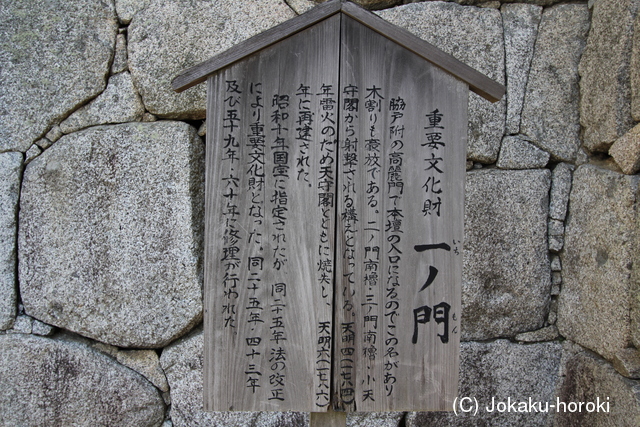 重要文化財 一ノ門
いち もん
脇戸附の高麗門で本壇の入口になるのでこの名があり
木割りも豪放である。二ノ門南櫓・三ノ門南櫓・小天
守閣から射撃される構えとなっている。天明四(一七八四)
年雷火のため天守閣とともに焼失し、天明六(一七八六)
年に再建された。
昭和十年国宝に指定されたが 同二十五年 法の改正
により重要文化財となった。同二十五年・四十三年
及び五十九年・六十年に修理が行われた
(C) Jokaku-horoki